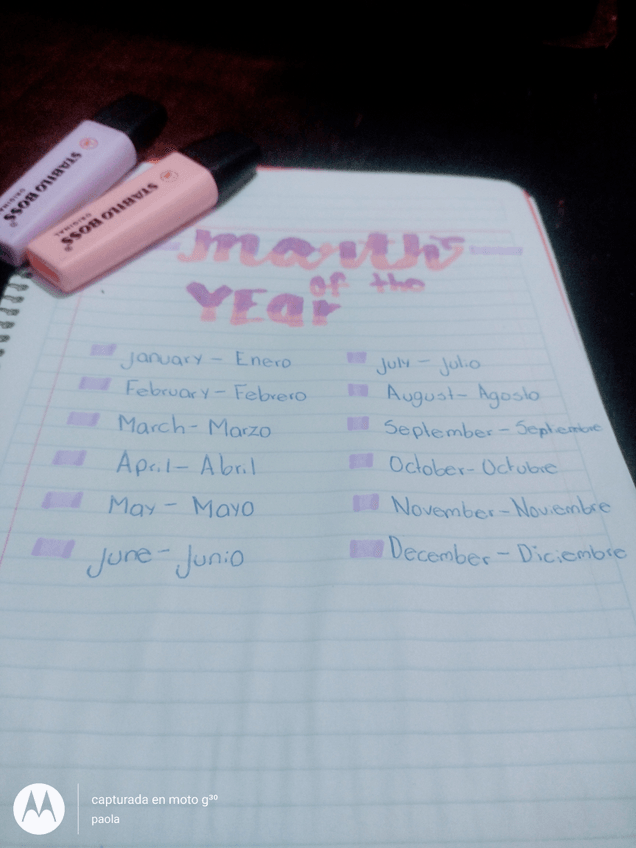 STABILO BOSS
ORIGINAL
STABILO BOSS
ORIGINAL
month
of the
YEar
January - Enero
February - Febrero
March - Marzo
April - Abril
May - Mayo
June - Junio
July - Julio
August - Agosto
September - Septiembre
October - Octubre
November - Noviembre
December - Diciembre
capturada en moto g³⁰
paola